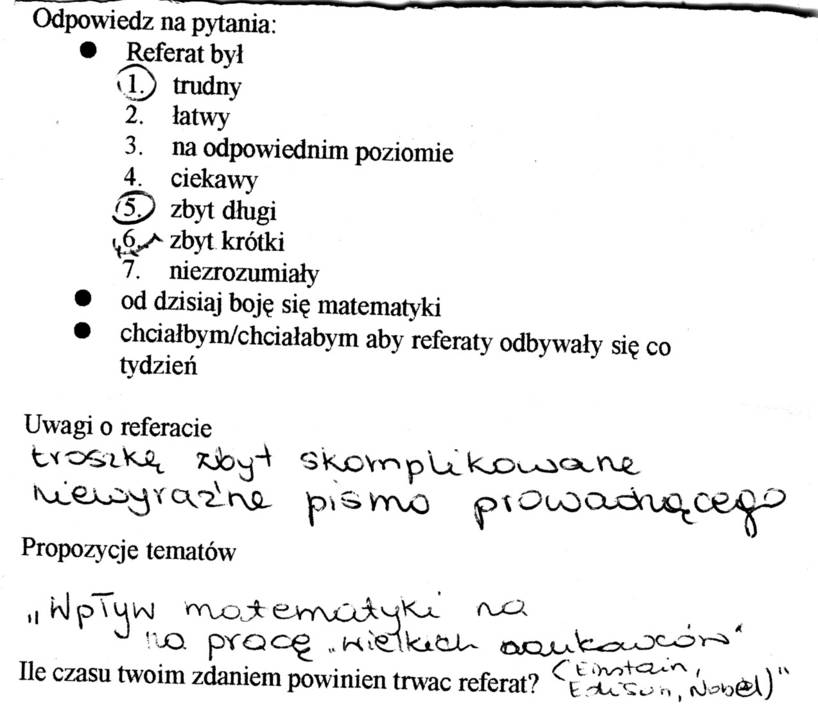 Odpowiedz na pytania:
● Referat był
1. trudny
2. łatwy
3. na odpowiednim poziomie
4. ciekawy
5. zbyt długi
6. zbyt krótki
7. niezrozumiały
● od dzisiaj boję się matematyki
● chciałbym/chciałabym aby referaty odbywały się co
tydzień
Uwagi o referacie
troszkę zbyt skomplikowane
niewyraźne pismo prowadzącego
Propozycje tematów
„Wpływ matematyki na
na pracę „wielkich naukowców"
Ile czasu twoim zdaniem powinien trwac referat?
(Einstain,
Edison, Nobel)"